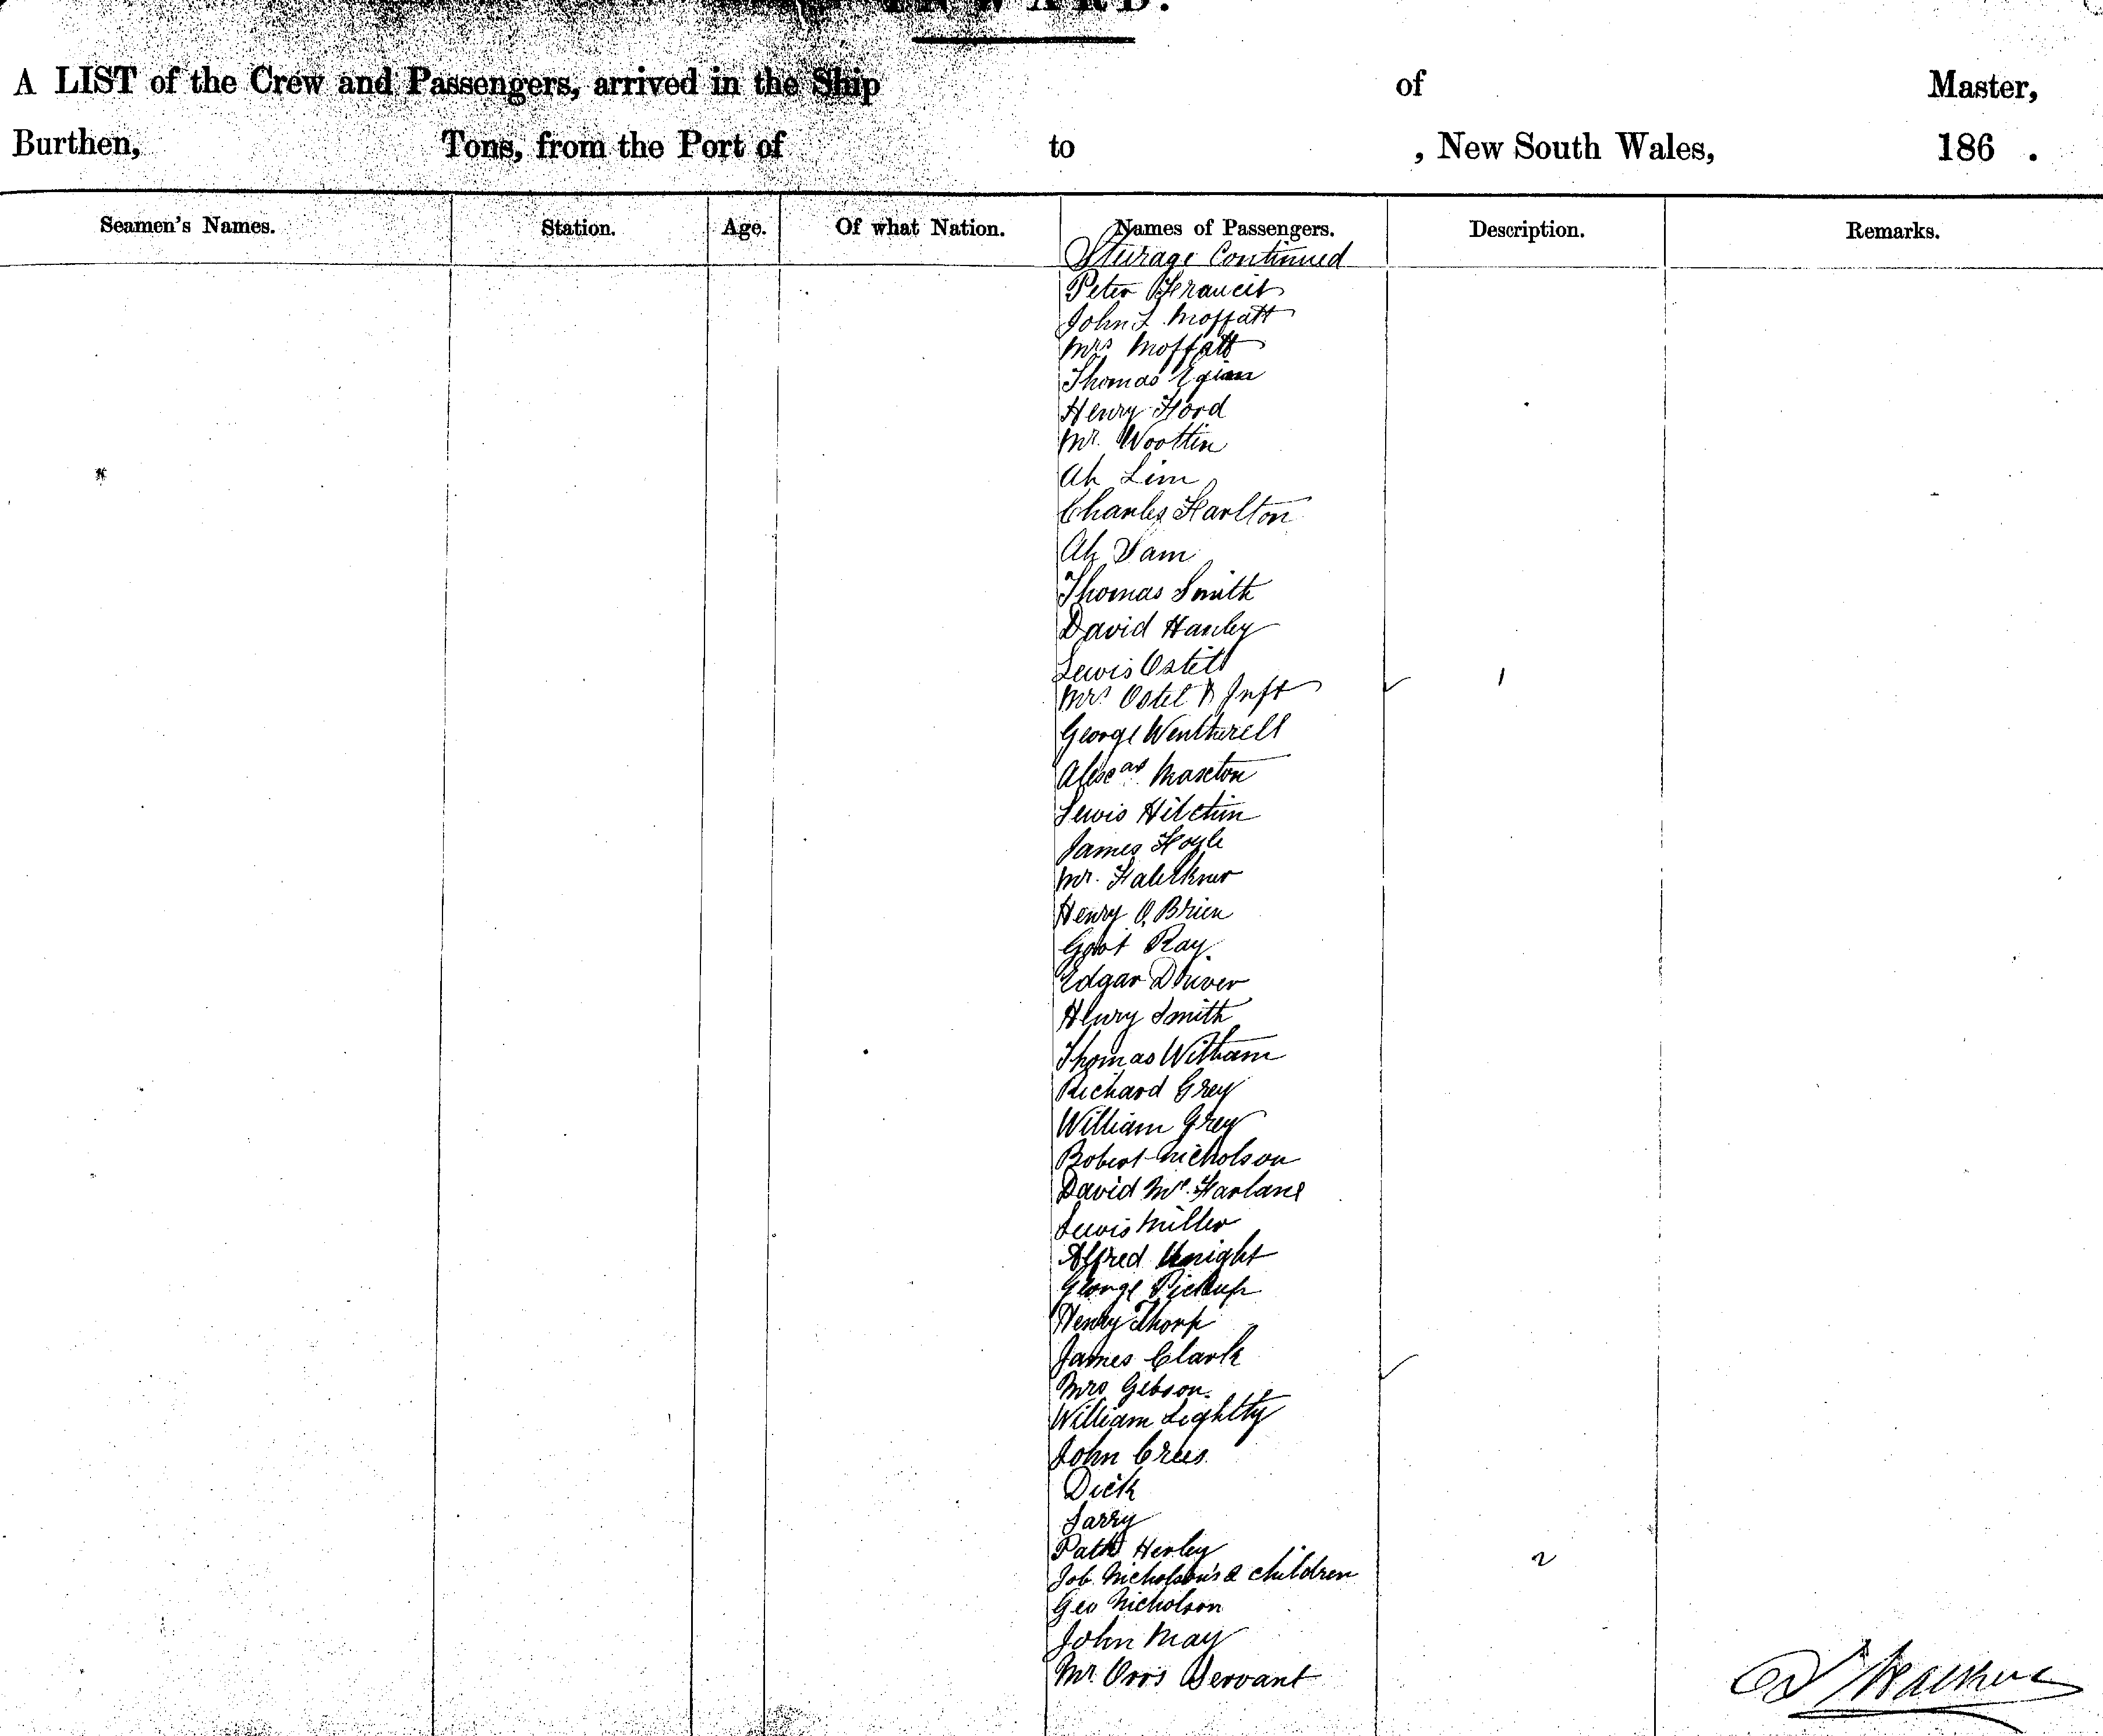 INWARD.
A LIST of the Crew and Passengers, arrived in the Ship of Master,
Burthen, Tons, from the Port of to , New South Wales, 186 .
Seamen's Names. Station. Age. Of what Nation. Names of Passengers. Description. Remarks.
Steirage Continued
Peter Francis
John L Moffatt
Mrs Moffatt
Thomas Egian
Henry Ford
Mr. Woottin
Ah Lim
Charles Harlton
Ah Sam
Thomas Smith
David Hanley
Lewis Ostel
Mrs Ostel & Inft 1
George Wentherell
Maxton
Lewis Hitchin
James Hoyle
Mr. Falelkner
Henry O Brien
Ray
Edgar Driver
Henry Smith
Thomas Witham
Richard Grey
William Grey
Robert Nicholson
David Mc Farlane
Lewis Miller
Alfred Knight
George Pickup
Henry Thorp
James Clark
Mrs Gibson.
William Lightly
John Crees
Dick
Larry
Patk Herley
Job Nicholson's 2 children 2
Geo Nicholson
John May
Mr. Orrs Servant